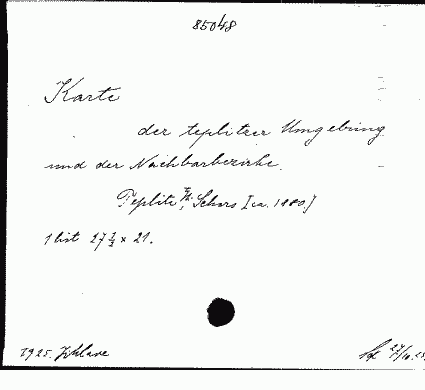 85048
Karte
der teplitzer Umgebung
und der Nachbarbezirke.
Teplitz, Th. Schors [ca. 1880.]
1 list 27 ½ × 21.
1925.